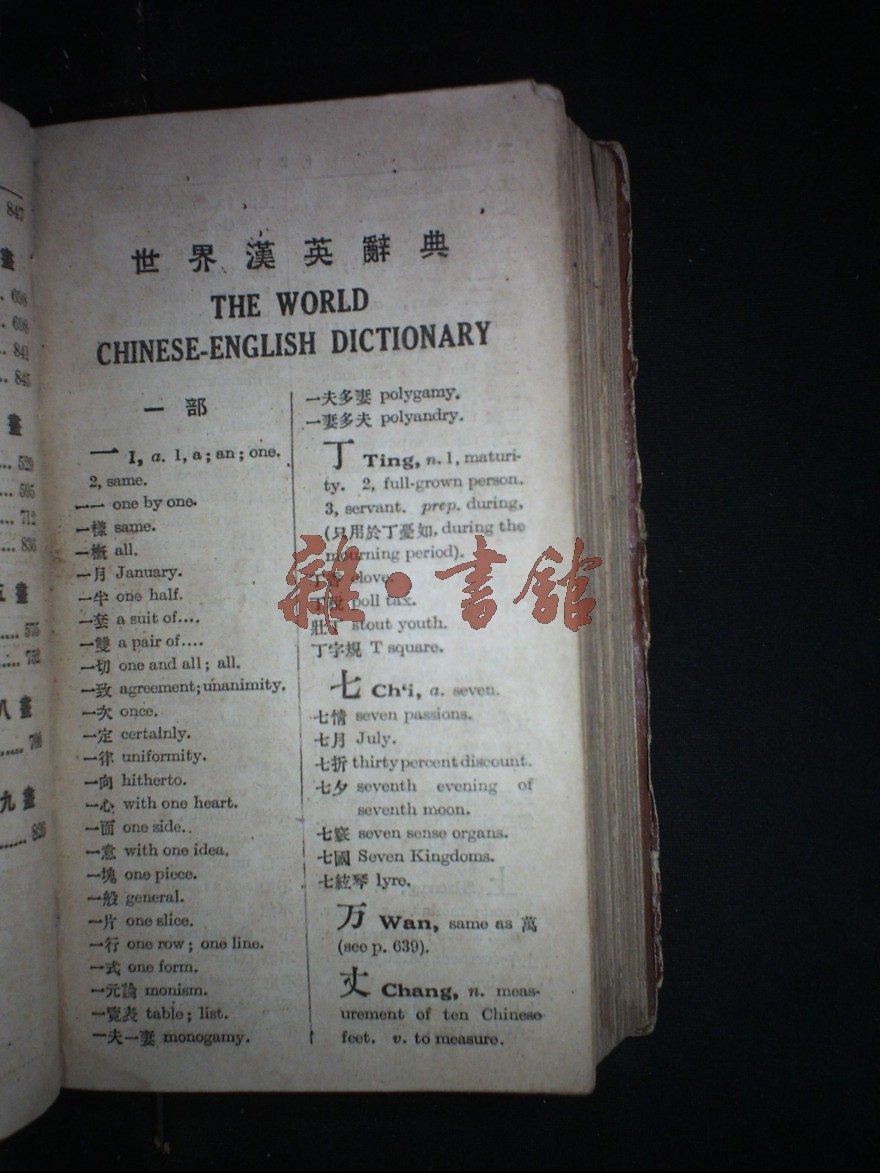 847
畫
.. 698
.. 698
.. 841
.. 845
畫
.... 529
.... 595
.... 712
.... 836
五畫
..... 575
..... 752
八畫
九畫
世界漢英辭典
THE WORLD
CHINESE-ENGLISH DICTIONARY
一部
一 I, a. 1, a; an; one.
2, same.
一一 one by one.
一樣 same.
一概 all.
一月 January.
一半 one half.
一套 a suit of....
一雙 a pair of....
一切 one and all; all.
一致 agreement; unanimity.
一次 once.
一定 certainly.
一律 uniformity.
一向 hitherto.
一心 with one heart.
一面 one side.
一意 with one idea.
一塊 one piece.
一般 general.
一片 one slice.
一行 one row; one line.
一式 one form.
一元論 monism.
一覽表 table; list.
一夫一妻 monogamy.
一夫多妻 polygamy.
一妻多夫 polyandry.
丁 Ting, n. 1, maturi-
ty. 2, full-grown person.
3, servant. prep. during,
(只用於丁憂如, during the
mourning period).
丁香 clove.
丁稅 poll tax.
壯丁 stout youth.
丁字規 T square.
七 Ch‘i, a. seven.
七情 seven passions.
七月 July.
七折 thirty percent discount.
七夕 seventh evening of
seventh moon.
七竅 seven sense organs.
七國 Seven Kingdoms.
七絃琴 lyre.
万 Wan, same as 萬
(see p. 639).
丈 Chang, n. meas-
urement of ten Chinese
feet. v. to measure.
雜·書館